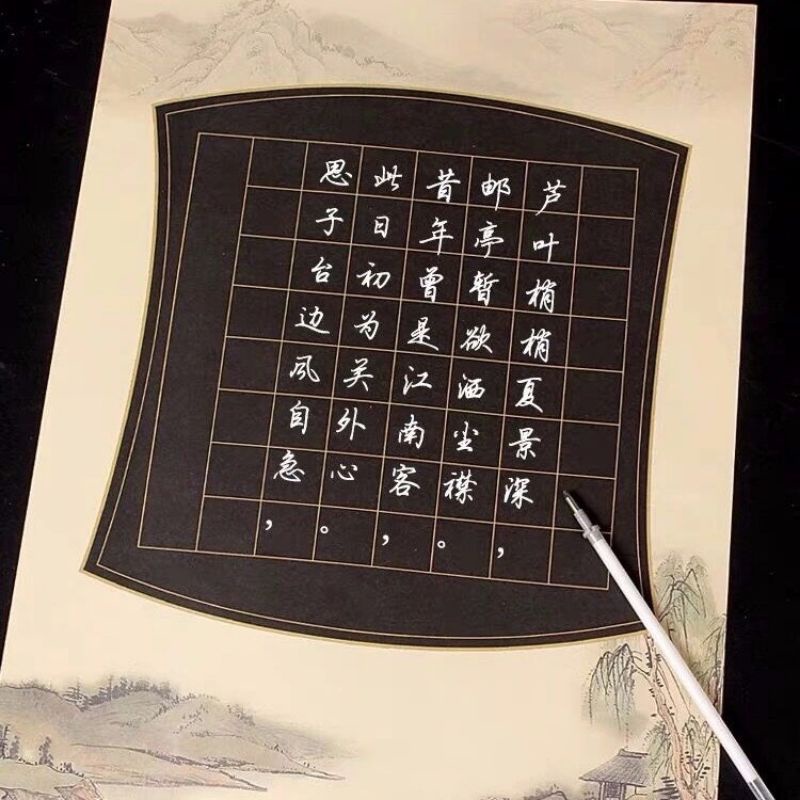 芦叶梢梢夏景深，
邮亭暂欲洒尘襟。
昔年曾是江南客，
此日初为关外心。
思子台边风自急，